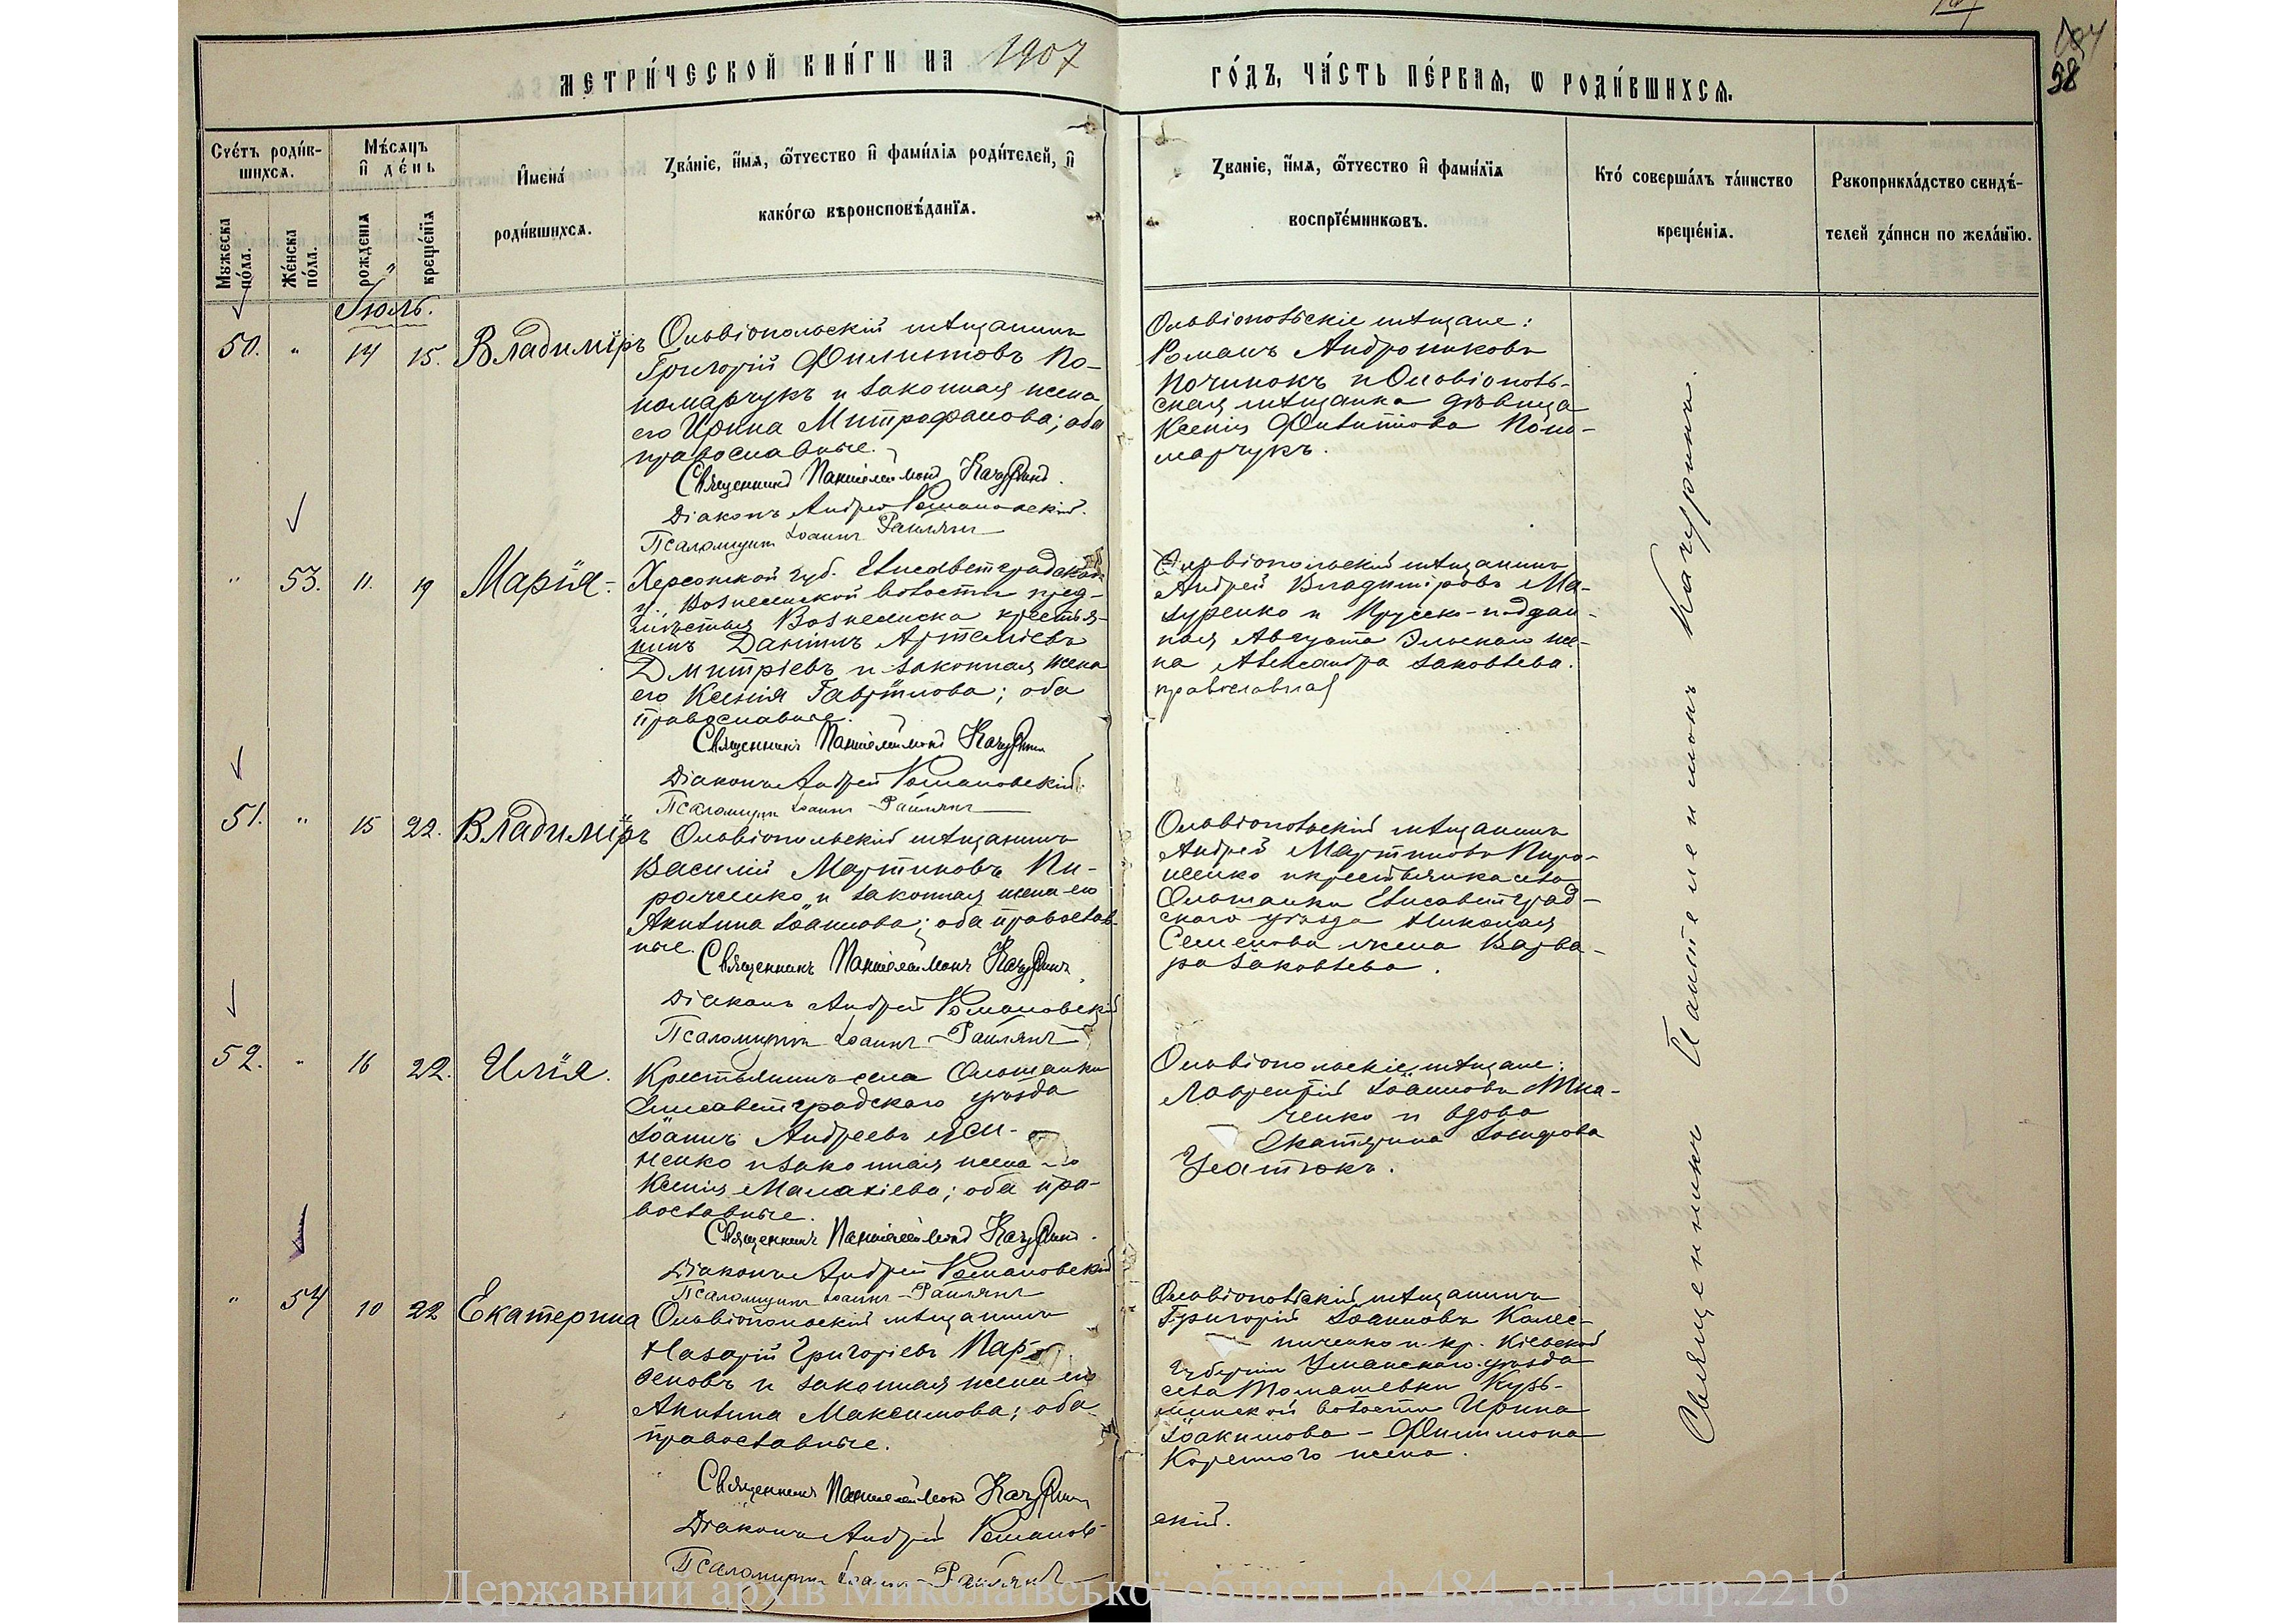 МЕТРИ́ЧЕСКОЙ КНИ́ГИ НА 1907
ГО́ДЪ, ЧА́СТЬ ПЕ́РВАЯ, Ѡ РОДИ́ВШИХСЯ.
58
Счетъ роди́вшихся.
Му́жеска по́ла.
Же́нска по́ла.
Мѣ́сяцъ и де́нь
рожденія
креще́нїя
Имена́
роди́вшихся.
Зва́ніе, имя, ѻтчество и фами́лія роди́телей, и
како́гѡ вѣроисповѣ́данїя.
Зваиніе, имя, ѻтчество и фами́лїя
воспрїе́мниковъ.
Кто́ соверша́лъ та́инство
креще́нія.
Рукоприкла́дство свидѣ́-
телей за́писи по жела́нїю.
Іюль.
50. " 14 15. Владиміръ
Ольвіопольскій мѣщанинъ
Григорій Филиповъ По-
номарчукъ и законная жена
его Ирина Митрофанова; оба
православные.
Священникъ Пантелеимонъ Качуринъ.
Діаконъ Андрей Романовскій.
Псаломщикъ Іоаннъ Раилянъ
Ольвіопольскіе мѣщане:
Романъ Андрониковъ
Починокъ и Ольвіополь-
ская мѣщанка дѣвица
Ксенія Филиппова Поно-
марчукъ.
" 53. 11. 19 Марія
Херсонской губ. Елисаветградскаго
у., Вознесенской волости пред-
мѣстья Вознесенска крестья-
нинъ Даніилъ Артеміевъ
Дмитріевъ и законная жена
его Ксенія Гавріилова; оба
православные.
Священникъ Пантелеимонъ Качуринъ
Діаконъ Андрей Романовскій
Псаломщикъ Іоаннъ Раилянъ
Ольвіопольскій мѣщанинъ
Андрей Владиміровъ Ма-
зуренко и Прусско-поддан-
ная Августа Эльскаго же-
на Александра Іаковлева.
православная
51. " 15 22. Владиміръ
Ольвіопольскій мѣщанинъ
Василій Мартиновъ Пи-
роженко и законная жена его
Акилина Іоаннова; оба православ-
ные.
Священникъ Пантелеимонъ Качуринъ
Діаконъ Андрей Романовскій
Псаломщикъ Іоаннъ Раилянъ
Ольвіопольскій мѣщанинъ
Андрей Мартиновъ Пиро-
женко и крестьянка села
Ольшанки Елисаветград-
скаго уѣзда Николая
Семенова жена Варва-
ра Іаковлева.
52. " 16 22. Илія.
Крестьянинъ села Ольшанки
Елисаветградскаго уѣзда
Іоаннъ Андреевъ Яси-
ненко и законная жена его
Ксенія Малахіева; оба пра-
вославные.
Священникъ Пантелеимонъ Качуринъ.
Діаконъ Андрей Романовскій
Псаломщикъ Іоаннъ Раилянъ
Ольвіопольскіе мѣщане:
Лаврентій Іоанновъ Тка-
ченко и вдова
Екатерина Іосифова
Усатюкъ.
" 54 10 22 Екатерина
Ольвіопольскій мѣщанинъ
Назарій Григоріевъ Пар-
и законная жена его
Акилина Максимова; оба
православные.
Священникъ Пантелеимонъ Качуринъ
Діаконъ Андрей Романов-
скій.
Псаломщикъ Іоаннъ Раилянъ
Ольвіопольскій мѣщанинъ
Григорій Іоанновъ Колес-
ниченко и кр. Кіевской
губерніи Уманскаго уѣзда
села Томашевки Кузь-
минской волости Ирина
Іоакимова - Филимона
Коренного жена.
Священникъ Пантелеимонъ Качуринъ.
Державний архів Миколаївської області, ф.484, оп.1, спр.2216